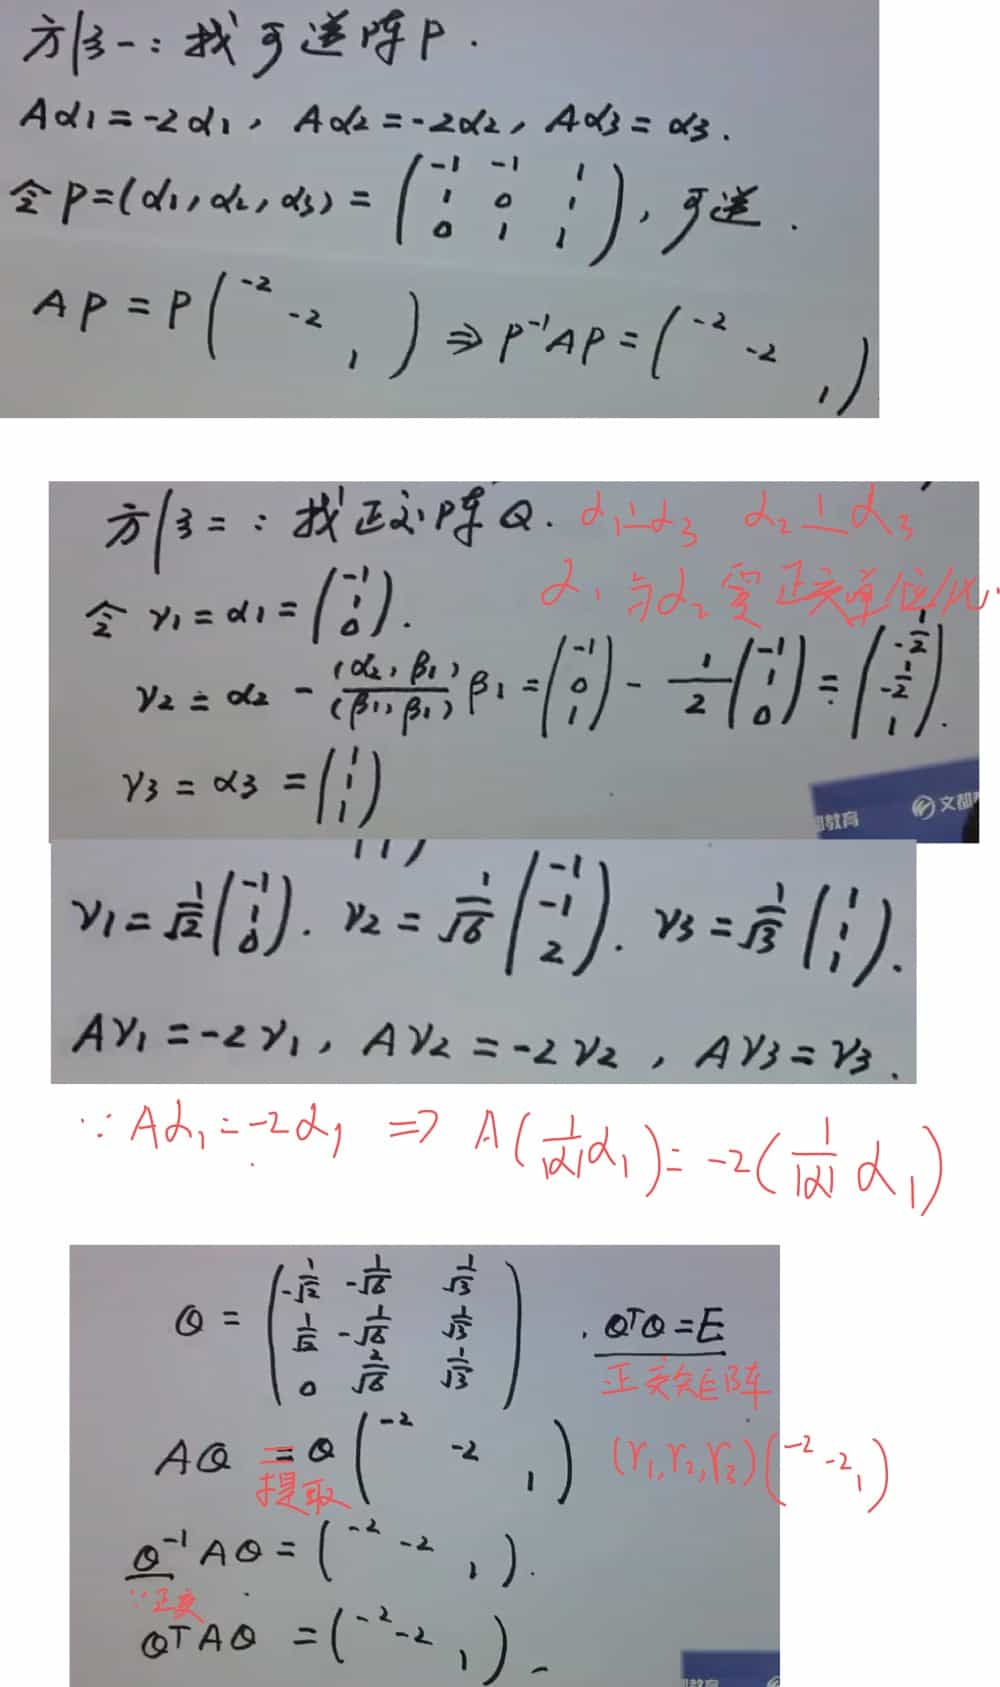 方法一：找可逆阵P.
Aα1=-2α1, Aα2=-2α2, Aα3=α3.
令P=(α1,α2,α3)=(-1 -1 1; 1 0 1; 0 1 1), 可逆.
AP=P(-2 -2 1) ⇒ P⁻¹AP=(-2 -2 1)
方法二：找正交阵Q. α1⊥α3 α2⊥α3
α1与α2要正交单位化.
令 γ1=α1=(-1; 1; 0).
γ2=α2-(α2,β1)/(β1,β1)β1=(-1; 0; 1)-1/2(-1; 1; 0)=(-1/2; -1/2; 1).
γ3=α3=(1; 1; 1)
都教育 文都
γ1=1/√2(-1; 1; 0). γ2=1/√6(-1; -1; 2). γ3=1/√3(1; 1; 1).
Aγ1=-2γ1, Aγ2=-2γ2, Aγ3=γ3.
∵Aα1=-2α1 ⇒ A(1/|α|α1)=-2(1/|α|α1)
Q=(-1/√2 -1/√6 1/√3; 1/√2 -1/√6 1/√3; 0 2/√6 1/√3). QᵀQ=E
正交矩阵
AQ=Q(-2 -2 1) (γ1,γ2,γ3)(-2 -2 1)
提取
Q⁻¹AQ=(-2 -2 1).
∵正交
QᵀAQ=(-2 -2 1).
教育